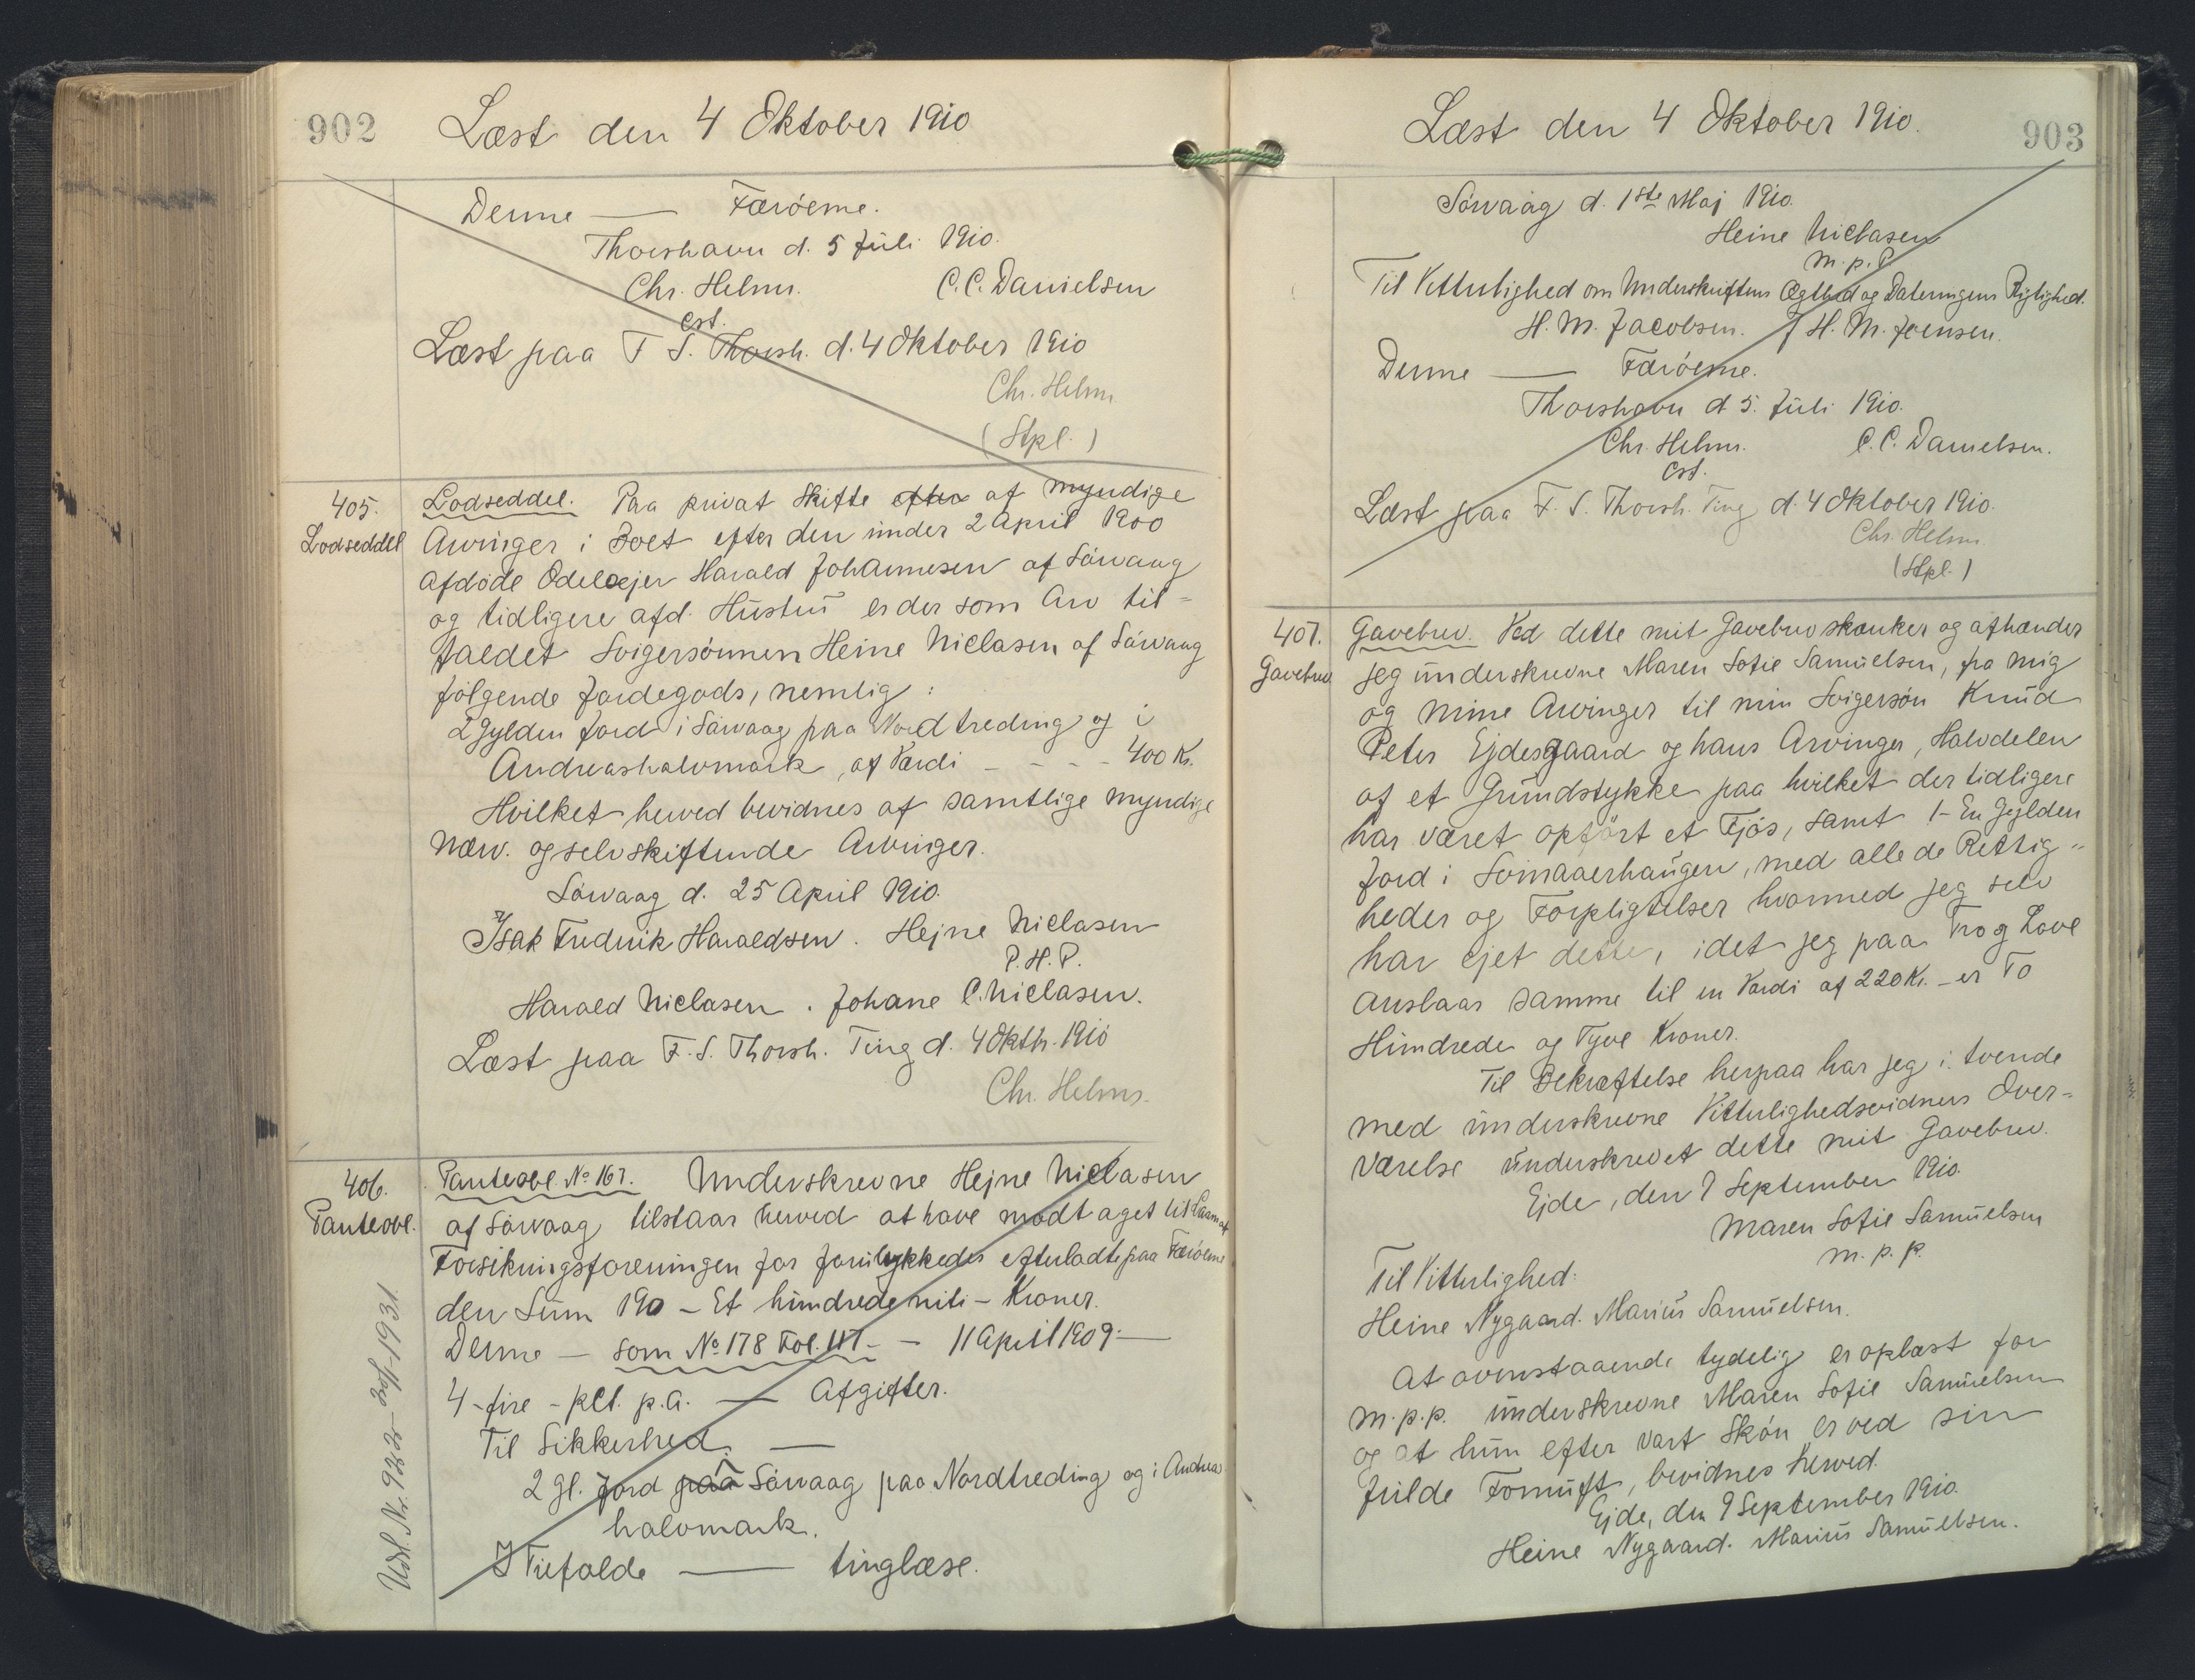 902
Læst den 4 Oktober 1910
Denne — Færöerne.
Thorshavn d. 5 Juli 1910.
Chr. Helms. C.C. Danielsen
cst.
Læst paa F S. Thorsh. d. 4 Oktober 1910
Chr. Helms
(Stpl.)
405.
Lodseddel
Lodseddel. Paa privat Skifte efter af myndige
Arvinger i Boet efter den under 2 April 1900
afdöde Odelsejer Harald Johannesen af Sörvaag
og tidligere afd. Hustru er der som Arv til-
faldet Svigersönnen Heine Niclasen af Sörvaag
følgende Jordegods, nemlig:
2 Gylden Jord i Sörvaag paa Nordtreding og i
Andreashalvmark, af Værdi - - - - 400 Kr.
Hvilket herved bevidnes af samtlige myndige
nærv. og selvskiftende Arvinger.
Sörvaag d. 25 April 1910.
Isak Fredrik Haraldsen. Hejne Niclasen
P.H.P.
Harald Niclasen. Johane C. Niclasen.
Læst paa F. S. Thorsh. Ting d. 4 Oktb. 1910
Chr. Helms.
406.
Panteobl.
Panteobl. No 167. Underskrevne Hejne Niclasen
af Sörvaag tilstaar herved at have modtaget til Laan af
Forsikringsforeningen for forulykkedes efterladte paa Færöerne
den Sum 190 - Et hundrede niti - Kroner.
Denne — som No 178 Fol. 111 - - 11 April 1909 —
4 - fire - pCt. p.a. — Afgifter.
Til Sikkerhed —
2 Gl. Jord paa i Sörvaag paa Nordtreding og i Andreas
halvmark.
I Tilfælde — tinglæse.
Udsl. Nr. 922 1931
903
Læst den 4 Oktober 1910.
Sörvaag d. 1ste Maj 1910.
Heine Niclasen
m. p. P.
Til Vitterlighed om Underskriftens Ægthed og Dateringens Rigtighed.
H. M. Jacobsen. J H. M. Joensen.
Denne — Færöerne.
Thorshavn d 5. Juli 1910.
Chr. Helms. C. C. Danielsen.
cst.
Læst paa F. S. Thorsh. Ting d. 4 Oktober 1910.
Chr. Helms.
(Stpl.)
407.
Gavebrev
Gavebrev. Ved dette mit Gavebrev skænker og afhænder
jeg underskrevne Maren Sofie Samuelsen, fra mig
og mine Arvinger til min Svigersön Knud
Peter Ejdesgaard og hans Arvinger, Halvdelen
af et Grundstykke paa hvilket der tidligere
har været opført et Fjøs, samt 1 - En Gylden
Jord i Svinaaerhaugen, med alle de Rettig-
heder og Forpligtelser hvormed jeg selv
har ejet dette, idet jeg paa Tro og Love
anslaar samme til en Værdi af 220 Kr. - er To
Hundrede og Tyve Kroner.
Til Bekræftelse herpaa har jeg i tvende
med underskrevne Vitterlighedsvidners Over-
værelse underskrevet dette mit Gavebrev.
Ejde, den 9 September 1910.
Maren Sofie Samuelsen
m. p. p.
Til Vitterlighed:
Heine Nygaard. Marius Samuelsen.
At ovenstaaende tydelig er oplæst for
m. p. p. underskrevne Maren Sofie Samuelsen
og at hun efter vort Skön er ved sin
fulde Fornuft, bevidnes herved.
Ejde, den 9 September 1910.
Heine Nygaard. Marius Samuelsen.